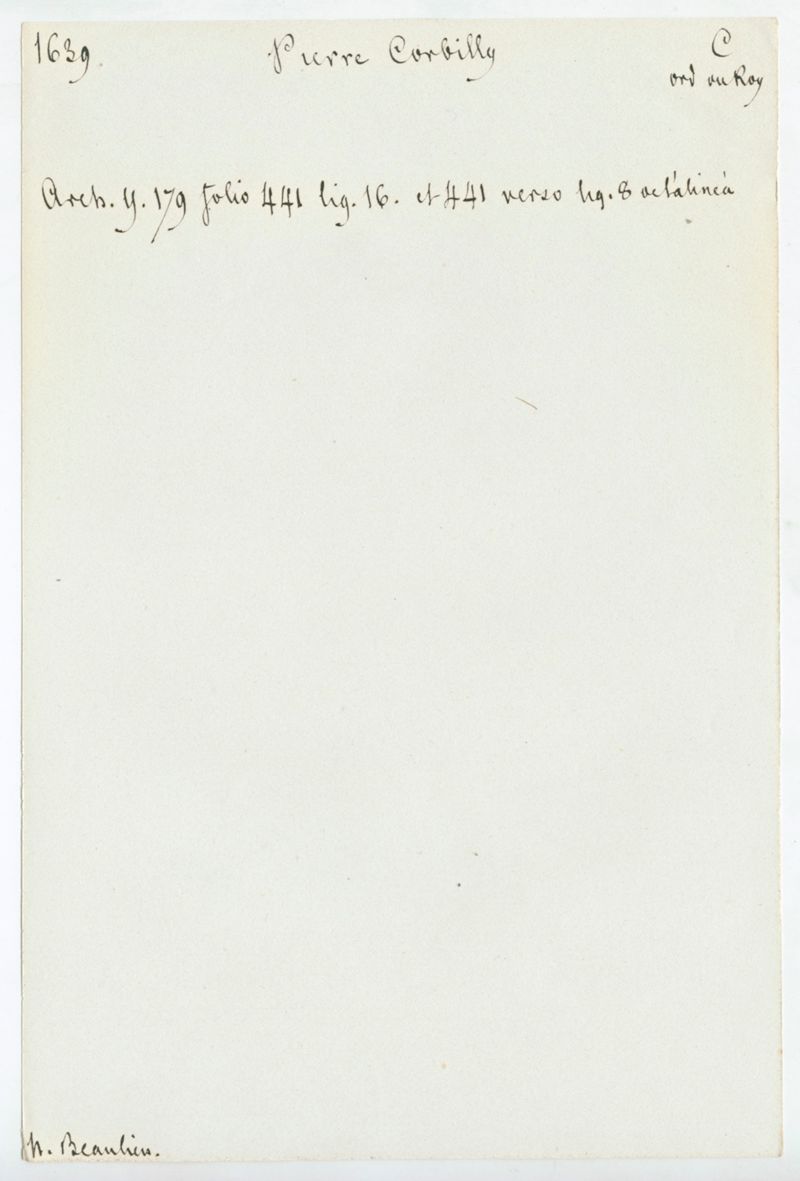 1639 Pierre Corbilly C
ord du Roy
Arch. Y. 179 folio 441 lig. 16. et 441 verso lig. 8 et alinéa
h. Beaulieu.